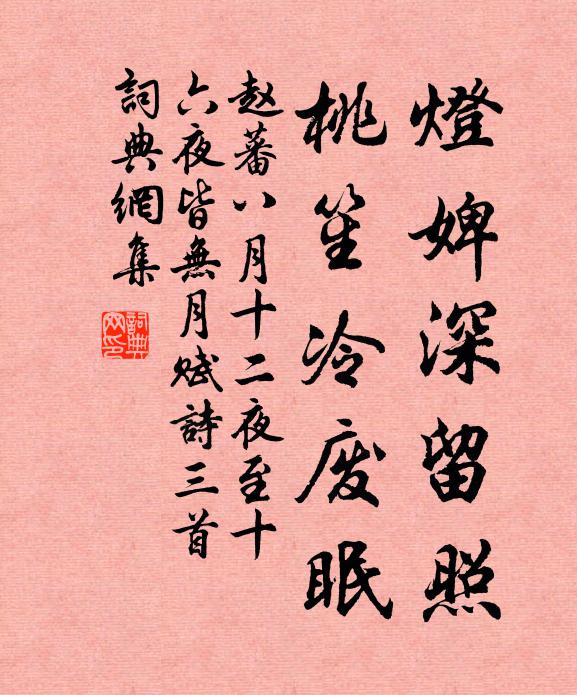 燈婢深留照
桃笙冷废眠
赵蕃八月十二夜至十
六夜皆無月赋詩三首
詞典網集
詞典網印